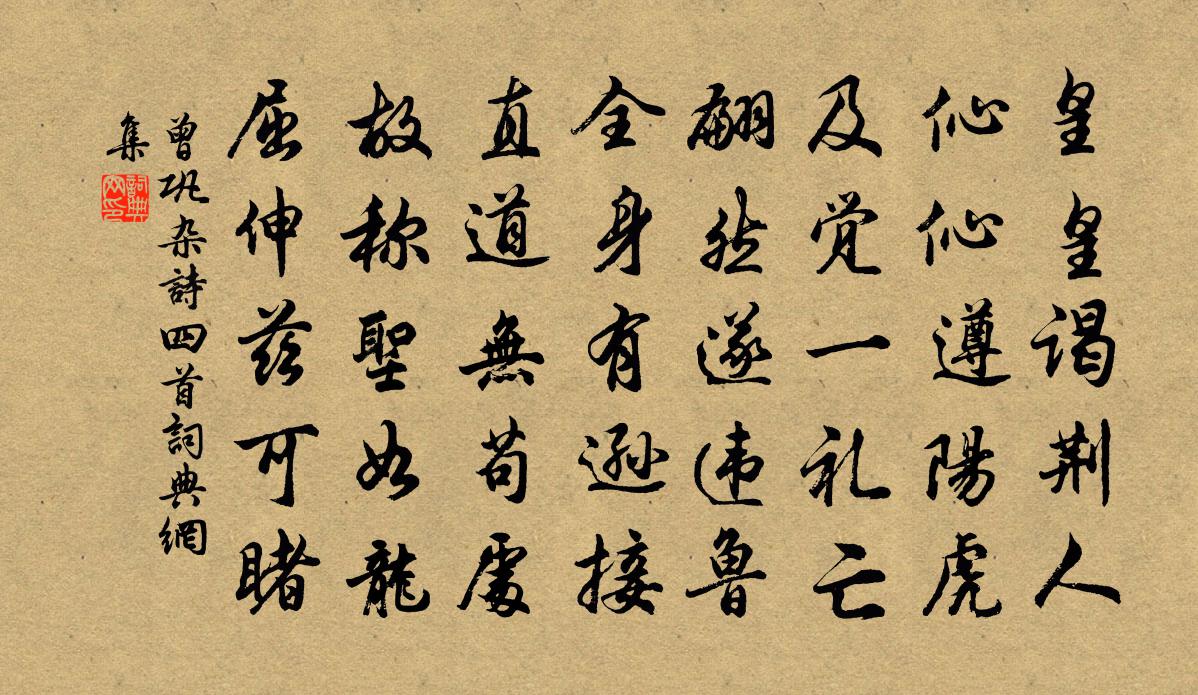 皇皇谒荆人
伈伈遵陽虎
及觉一礼亡
翩然遂违魯
全身有遜接
直道無苟處
故称聖如龍
屈伸兹可睹
曾巩杂詩四首詞典網
集
詞典
网印